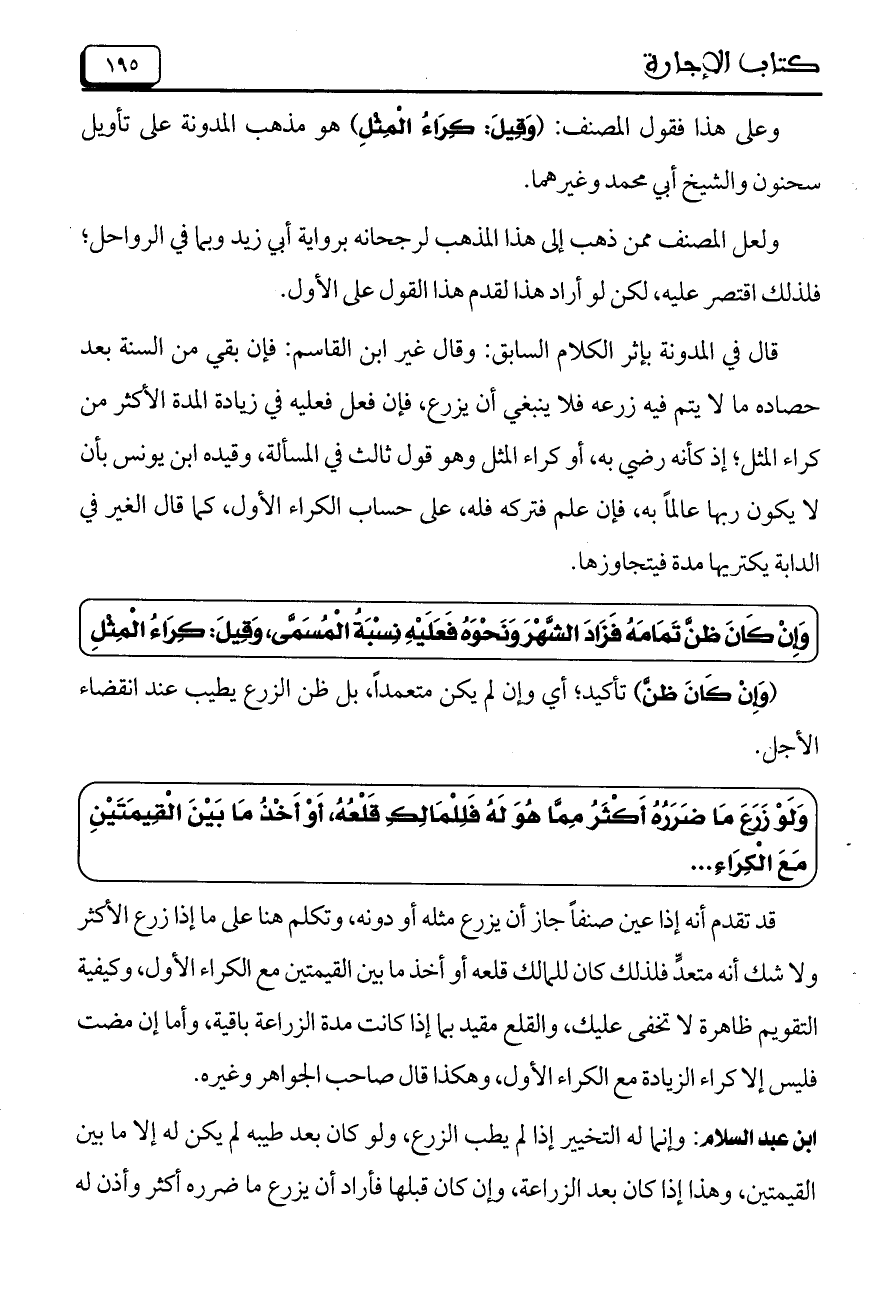 كتاب الإجارة ١٩٥
وعلى هذا فقول المصنف: (وَقِيلَ: كِرَاءُ الْمِثْلِ) هو مذهب المدونة على تأويل
سحنون والشيخ أبي محمد وغيرهما.
ولعل المصنف ممن ذهب إلى هذا المذهب لرجحانه برواية أبي زيد وبما في الرواحل؛
فلذلك اقتصر عليه، لكن لو أراد هذا لقدم هذا القول على الأول.
قال في المدونة بإثر الكلام السابق: وقال غير ابن القاسم: فإن بقي من السنة بعد
حصاده ما لا يتم فيه زرعه فلا ينبغي أن يزرع، فإن فعل فعليه في زيادة المدة الأكثر من
كراء المثل؛ إذ كأنه رضي به، أو كراء المثل وهو قول ثالث في المسألة، وقيده ابن يونس بأن
لا يكون ربها عالماً به، فإن علم فتركه فله، على حساب الكراء الأول، كما قال الغير في
الدابة يكتريها مدة فيتجاوزها.
وَإِنْ كَانَ ظَنَّ تَمَامَهُ فَزَادَ الشَّهْرَ وَنَحْوَهُ فَعَلَيْهِ نِسْبَةُ الْمُسَمَّى، وَقِيلَ: كِرَاءُ الْمِثْلِ
(وَإِنْ كَانَ ظَنَّ) تأكيد؛ أي وإن لم يكن متعمداً، بل ظن الزرع يطيب عند انقضاء
الأجل.
وَلَوْ زَرَعَ مَا ضَرَرُهُ أَكْثَرُ مِمَّا هُوَ لَهُ فَلِلْمَالِكِ قَلْعُهُ، أَوْ أَخْذُ مَا بَيْنَ الْقِيمَتَيْنِ
مَعَ الْكِرَاءِ...
قد تقدم أنه إذا عين صنفاً جاز أن يزرع مثله أو دونه، وتكلم هنا على ما إذا زرع الأكثر
ولا شك أنه متعدٍّ فلذلك كان للمالك قلعه أو أخذ ما بين القيمتين مع الكراء الأول، وكيفية
التقويم ظاهرة لا تخفى عليك، والقلع مقيد بما إذا كانت مدة الزراعة باقية، وأما إن مضت
فليس إلا كراء الزيادة مع الكراء الأول، وهكذا قال صاحب الجواهر وغيره.
ابن عبد السلام: وإنما له التخيير إذا لم يطب الزرع، ولو كان بعد طيبه لم يكن له إلا ما بين
القيمتين، وهذا إذا كان بعد الزراعة، وإن كان قبلها فأراد أن يزرع ما ضرره أكثر وأذن له